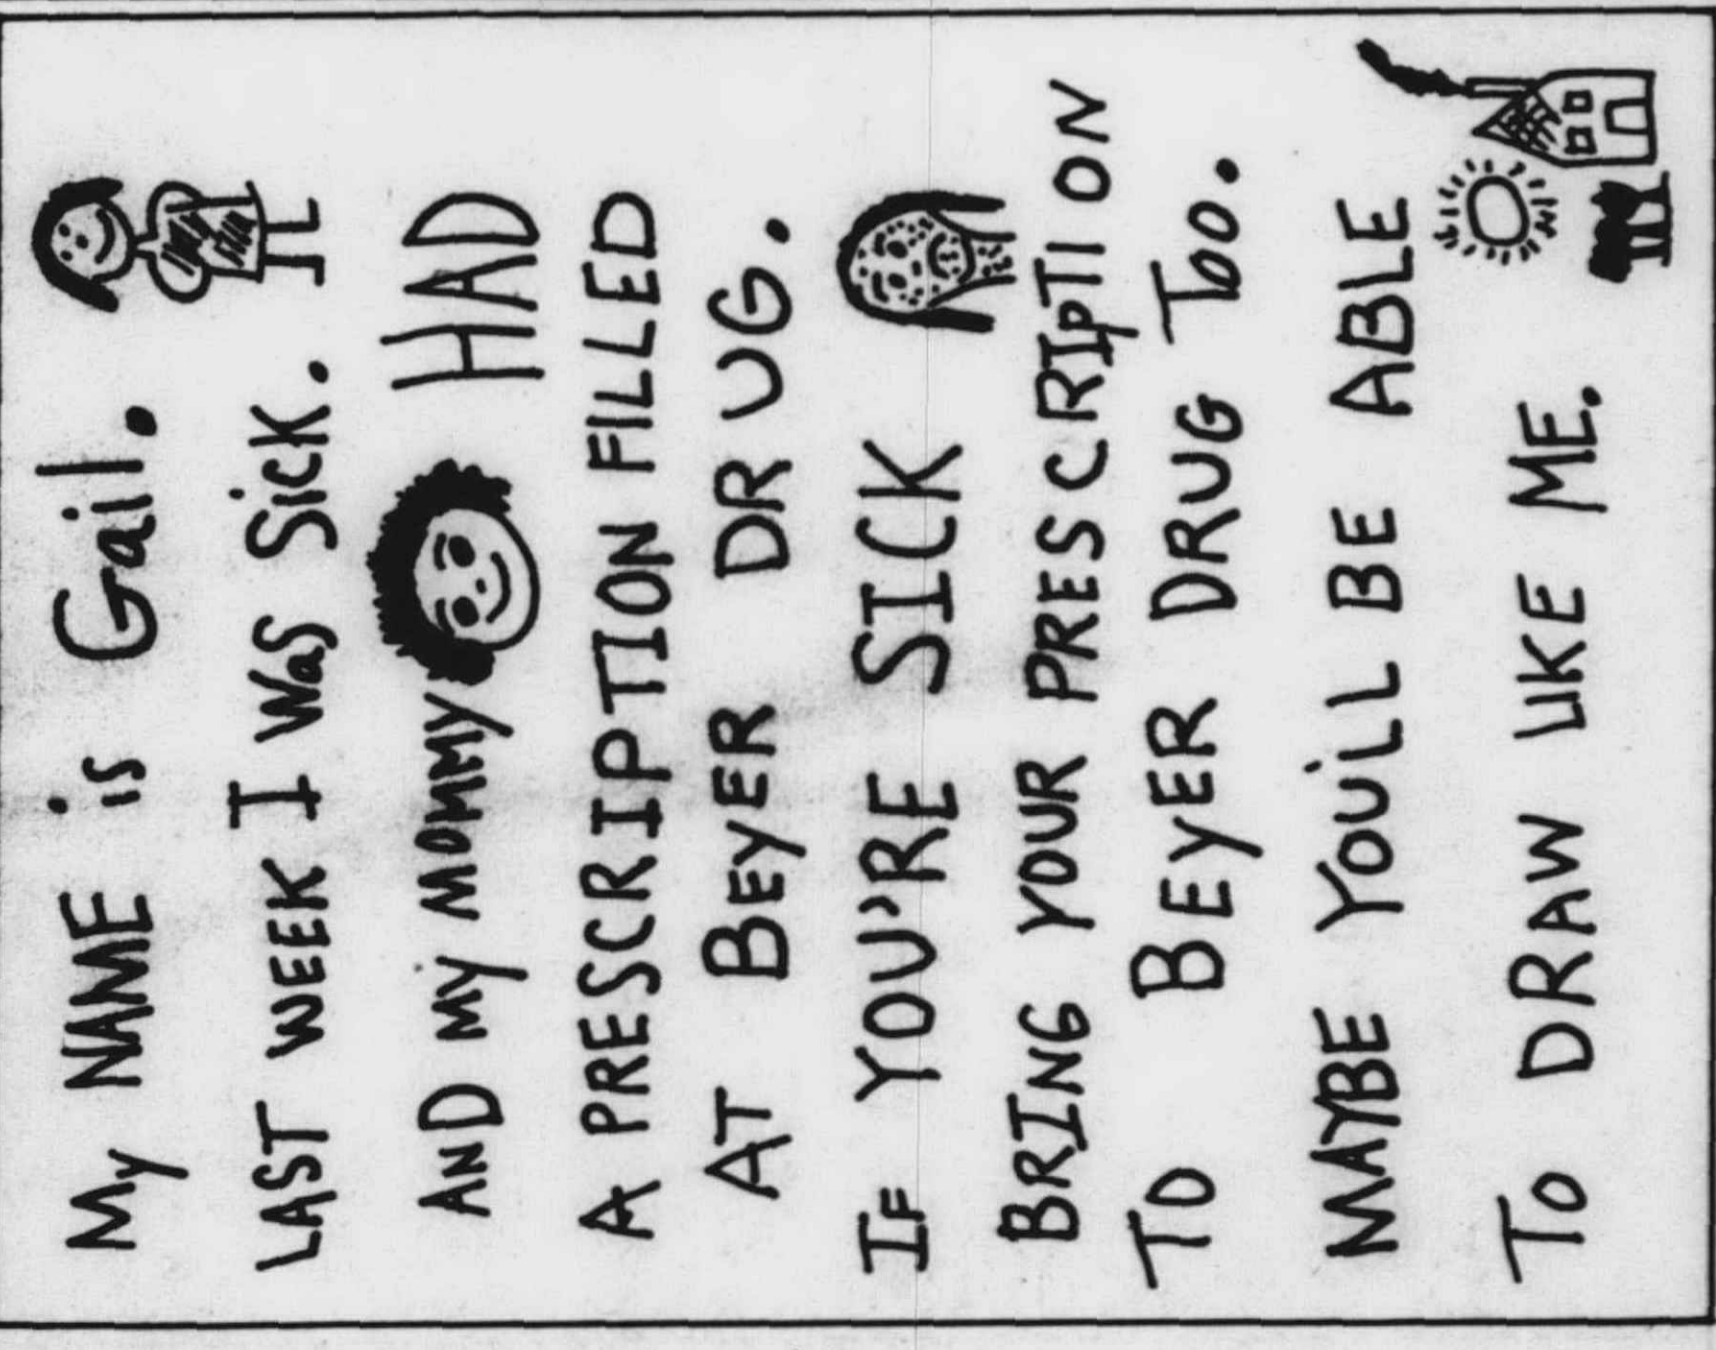 My NAME is Gail.
LAST WEEK I WaS SicK.
AND My MOMMY HAD
A PRESCRIPTION FILLED
AT BEyER DRUG.
IF YOU'RE SICK
BRING YOUR PRESCRIpTION
TO BEyER DRUG Too.
MAYBE YOU'LL BE ABLE
To DRAW LIKE ME.